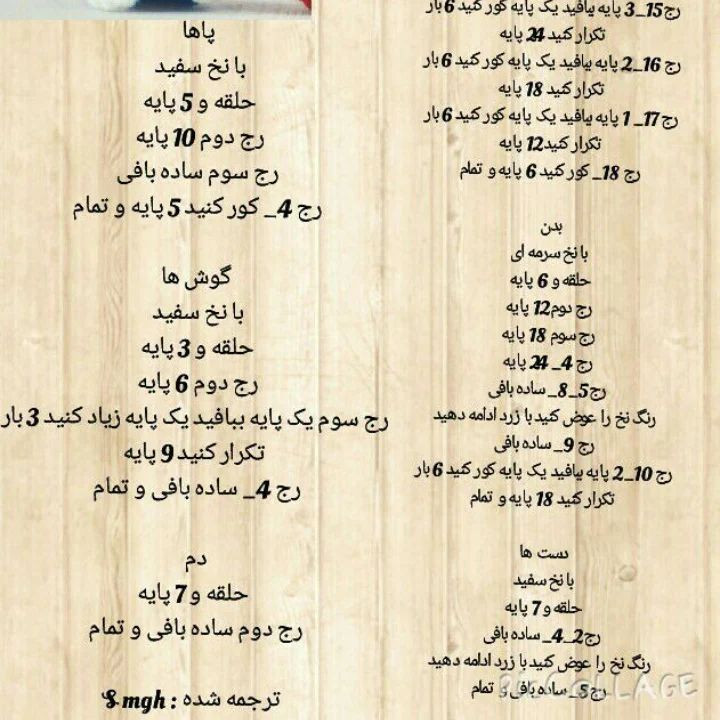 رج 15_3 پایه ببافید یک پایه کور کنید 6 بار
تکرار کنید 24 پایه
رج 16_2 پایه ببافید یک پایه کور کنید 6 بار
تکرار کنید 18 پایه
رج 17_ 1 پایه ببافید یک پایه کور کنید 6 بار
تکرار کنید 12 پایه
رج 18_ کور کنید 6 پایه و تمام
بدن
با نخ سرمه ای
حلقه و 6 پایه
رج دوم 12 پایه
رج سوم 18 پایه
رج 4_ 24 پایه
رج 5_8_ ساده بافی
رنگ نخ را عوض کنید با زرد ادامه دهید
رج 9_ ساده بافی
رج 10_2 پایه ببافید یک پایه کور کنید 6 بار
تکرار کنید 18 پایه و تمام
دست ها
با نخ سفید
حلقه و 7 پایه
رج 2_4_ ساده بافی
رنگ نخ را عوض کنید با زرد ادامه دهید
رج 5_ ساده بافی و تمام
پاها
با نخ سفید
حلقه و 5 پایه
رج دوم 10 پایه
رج سوم ساده بافی
رج 4_ کور کنید 5 پایه و تمام
گوش ها
با نخ سفید
حلقه و 3 پایه
رج دوم 6 پایه
رج سوم یک پایه ببافید یک پایه زیاد کنید 3 بار
تکرار کنید 9 پایه
رج 4_ ساده بافی و تمام
دم
حلقه و 7 پایه
رج دوم ساده بافی و تمام
ترجمه شده : mgh
PIC COLLAGE